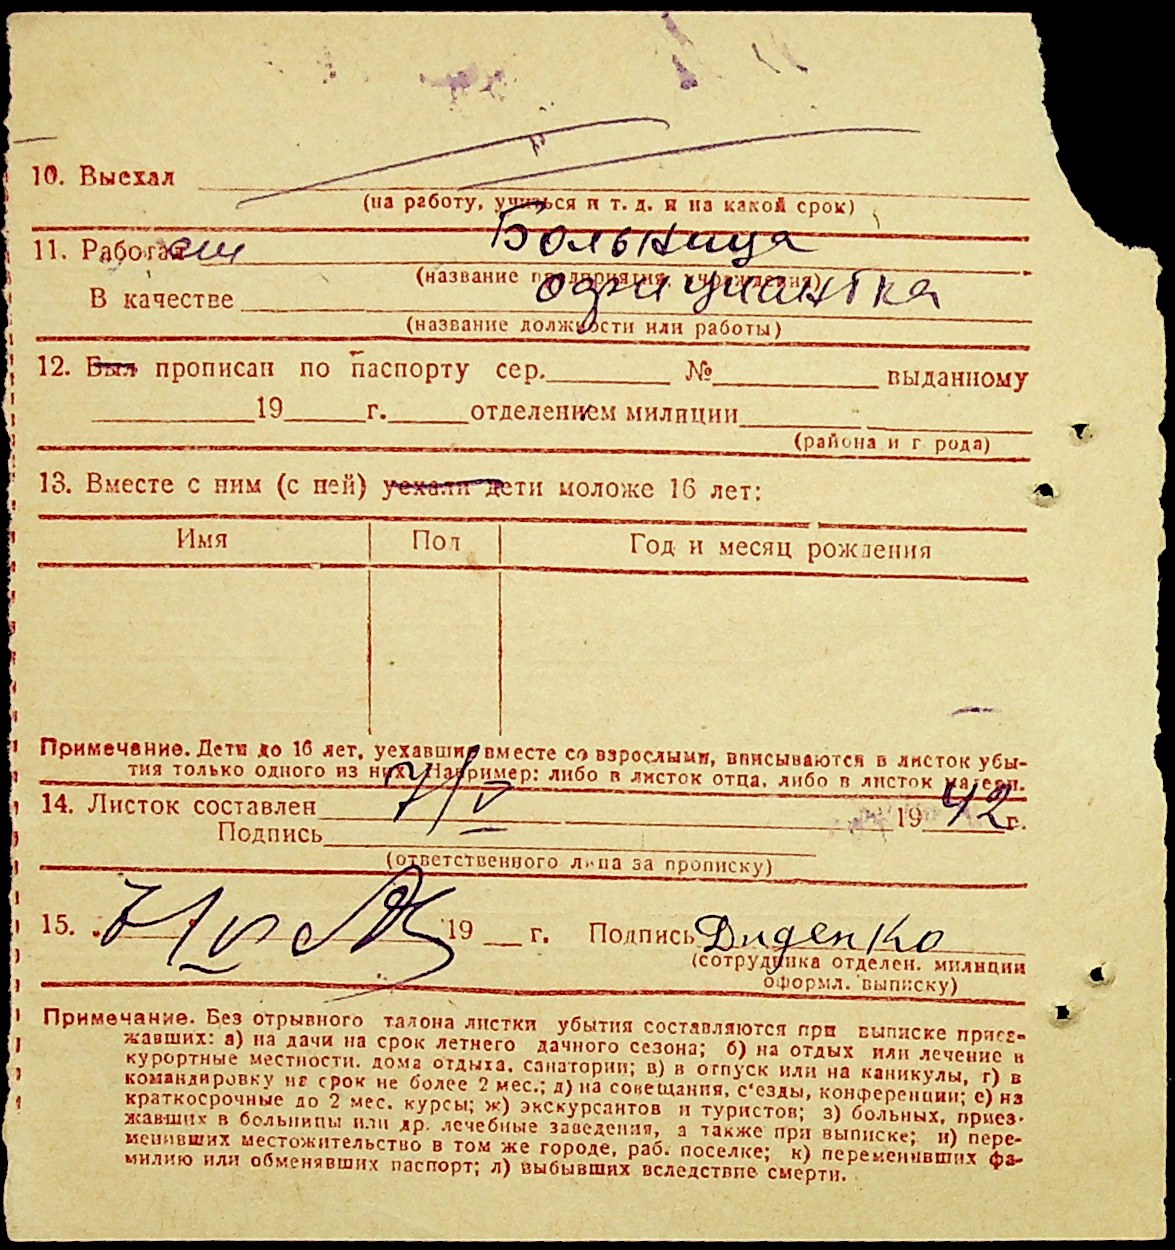 10. Выехал
(на работу, учиться и т. д. и на какой срок)
Больница
11. Работает
(название предприятия, учреждения)
официантка
В качестве
(название должности или работы)
12. Был прописан по паспорту сер. № выданному
19 г. отделением милиции
(района и г рода)
13. Вместе с ним (с ней) уехали дети моложе 16 лет:
Имя Пол Год и месяц рождения
Примечание. Дети до 16 лет, уехавшие вместе со взрослыми, вписываются в листок убы-
тия только одного из них. Например: либо в листок отца, либо в листок матери.
14. Листок составлен 7/V 1942 г.
Подпись
(ответственного лица за прописку)
15. 7/V 19 г. Подпись Диденко
(сотрудника отделен. милиции
оформл. выписку)
Примечание. Без отрывного талона листки убытия составляются при выписке приез-
жавших: а) на дачи на срок летнего дачного сезона; б) на отдых или лечение в
курортные местности, дома отдыха, санатории; в) в отпуск или на каникулы, г) в
командировку на срок не более 2 мес.; д) на совещания, с'езды, конференции; е) на
краткосрочные до 2 мес. курсы; ж) экскурсантов и туристов; з) больных, приез-
жавших в больницы или др. лечебные заведения, а также при выписке; и) пере-
менивших местожительство в том же городе, раб. поселке; к) переменивших фа-
милию или обменявших паспорт; л) выбывших вследствие смерти.